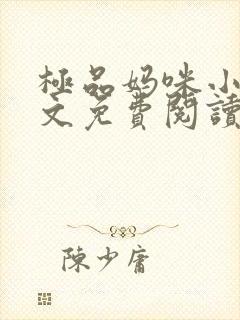 極品妈咪小
文免費閱讀
陳少庸